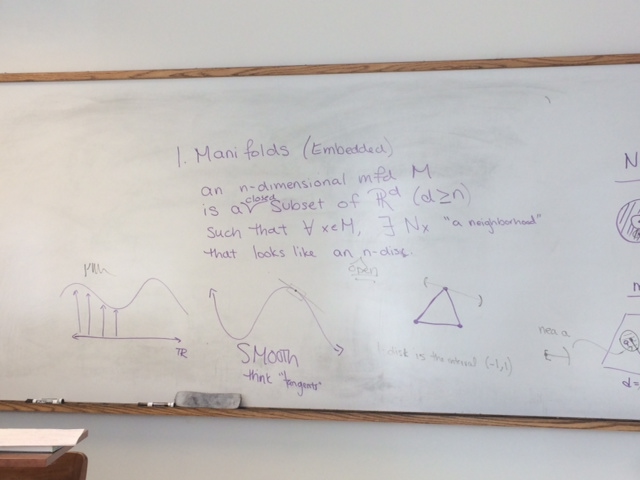 1. Manifolds (Embedded)
an n-dimensional mfd M
is a closed subset of ℝᵈ (d≥n)
such that ∀ x∈M, ∃ Nx "a neighborhood"
that looks like an open n-disc.
ℝ
SMOOTH
think "tangents"
disk is the interval (-1,1)
N
n
d=